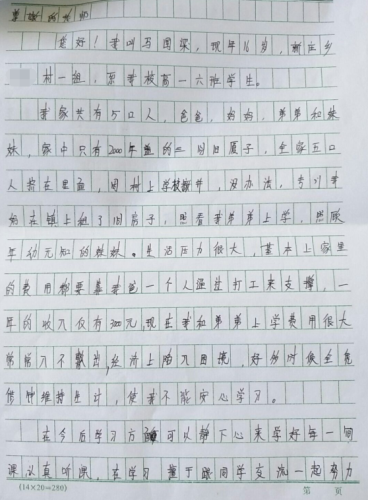 您好！我叫马国深，现年16岁，新庄乡
村一组，原某校高一六班学生。
我家共有5口人，爸爸，妈妈，弟弟和妹
妹，家中只有2000年盖的三间旧房子，全家五口
人挤在里面，因村上学校教学，没办法，专门
妈在镇上租了间房子，照看我弟弟上学，照顾
年幼无知的妹妹。生活压力很大，基本上家里
的费用都要靠我爸一个人通过打工来支撑，一
年的收入仅有300元，现在我和弟弟上学费用很大
常常入不敷出，经济上陷入困境，好多时候全凭
借钟维持生计，使我不能安心学习。
在今后学习方面可以静下心来学好每一间
课认真听课，在学习 擅于跟同学交流一起努力
(14×20=280)
第 页